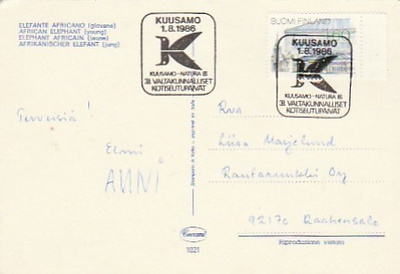 ELEFANTE AFRICANO (giovane)
AFRICAN ELEPHANT (young)
ELEPHANT AFRICAIN (jeune)
AFRIKANISCHER ELEFANT (jung)
KUUSAMO
1.8.1986
KUUSAMO-NATURA 86
38. VALTAKUNNALLISET
KOTISEUTUPÄIVÄT
SUOMI FINLAND
KUUSAMO
1.8.1986
KUUSAMO-NATURA 86
38. VALTAKUNNALLISET
KOTISEUTUPÄIVÄT
Terveisiä!
Elmi
ANNI
Rva
Liisa Marjelund
92170 Raahensalo
1021
Riproduzione vietata